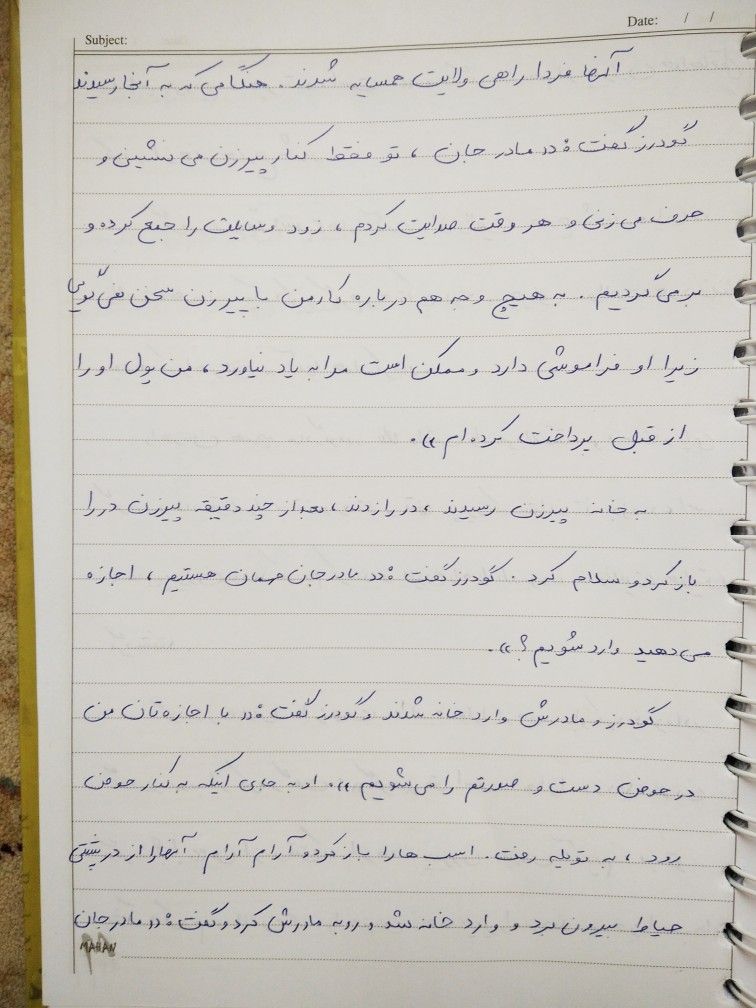 Date: / /
Subject:
آنها فردا راهی ولایت همسایه شدند. هنگامی که به آنجا رسیدند
گودرز گفت: «مادر جان، تو فقط کنار پیرزن می نشینی و
حرف می زنی و هر وقت صدایت کردم، زود وسایلت را جمع کرده و
بر می گردیم. به هیچ وجه هم درباره کار من با پیرزن سخن نمی گویی
زیرا او فراموشی دارد و ممکن است مرا به یاد نیاورد، من پول او را
از قبل پرداخت کرده ام».
به خانه پیرزن رسیدند، در را زدند، بعد از چند دقیقه پیرزن در را
باز کرد و سلام کرد. گودرز گفت: «مادر جان مهمان هستیم، اجازه
می دهید وارد شویم؟».
گودرز و مادرش وارد خانه شدند و گودرز گفت: «با اجازه تان من
در حوض دست و صورتم را می شویم». او به جای اینکه به کنار حوض
رود، به تویله رفت. اسب ها را باز کرد و آرام آرام آنها را از در پشتی
حیاط بیرون برد و وارد خانه شد و رو به مادرش کرد و گفت: «مادر جان
MAHAN